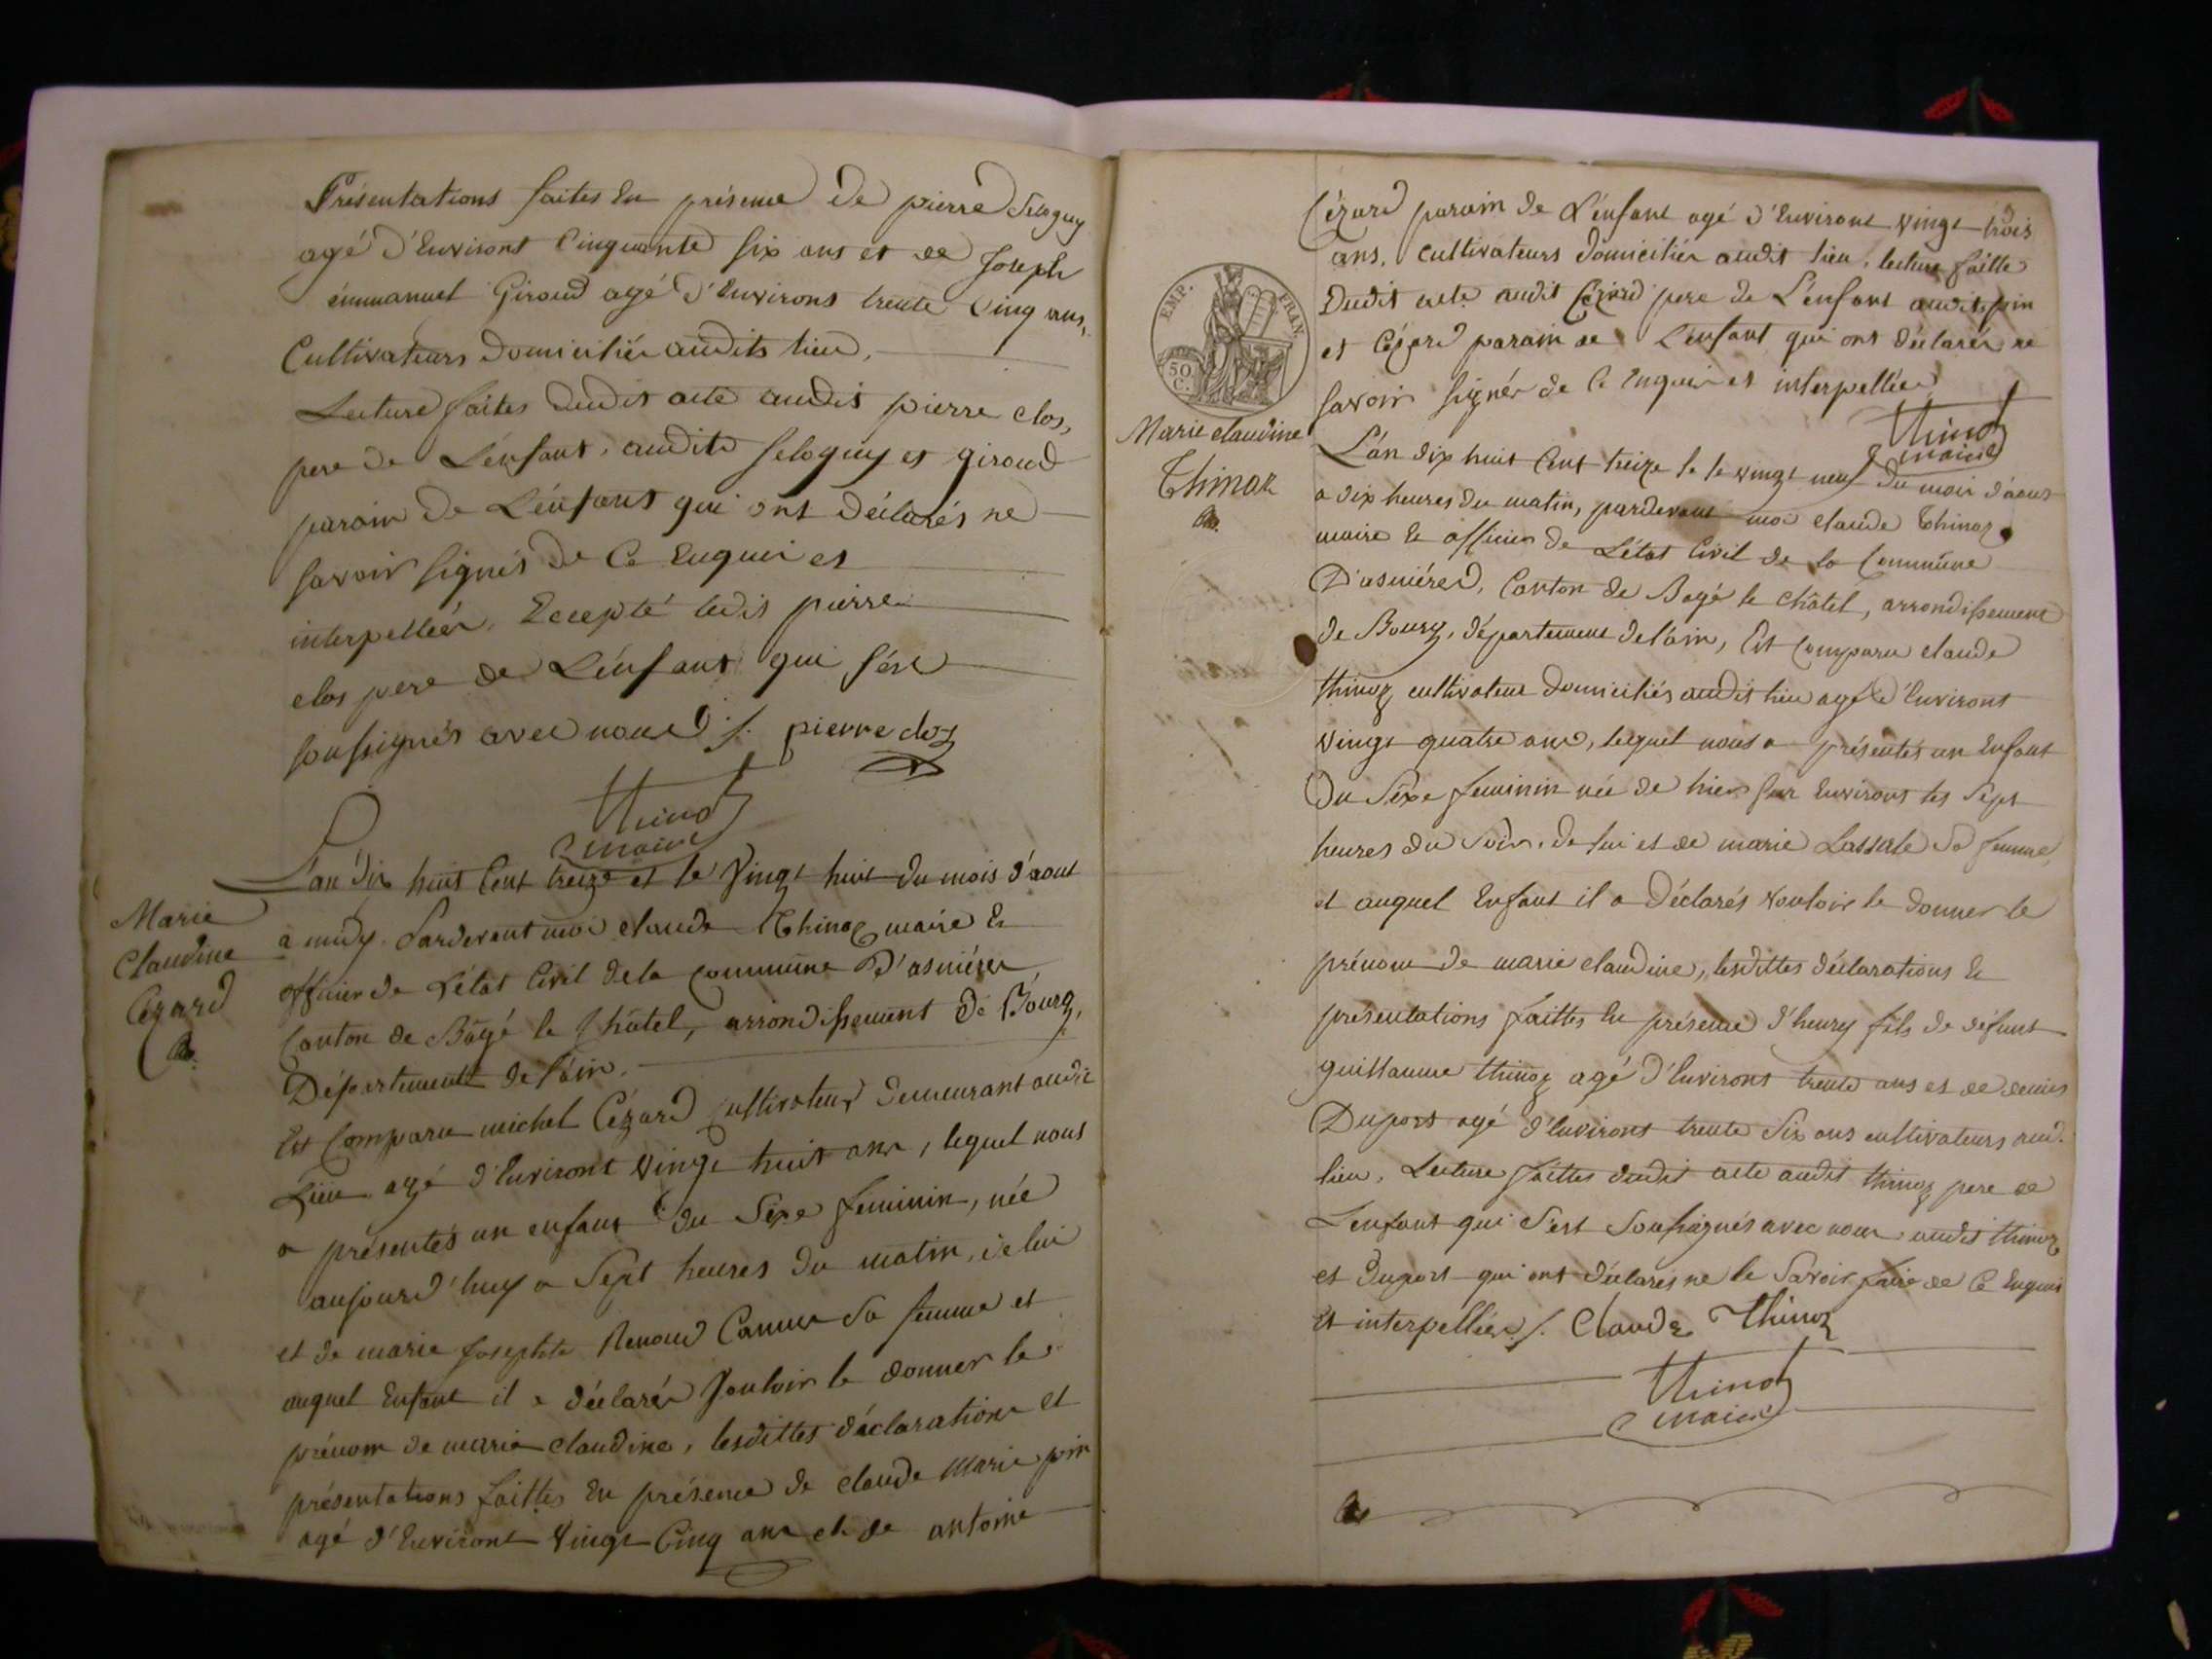 Présentations faites En présence de pierre Seloguy
agé d'Environt Cinquante six ans et de Joseph
émmanuel Giroud agé d'Environs trente Cinq ans,
Cultivateurs domiciliés audits lieu,
Lecture faites dudit acte audit pierre clos,
pere de L'énfant, audits seloguy et giroud
parain de L'énfant qui ont déclarés ne
savoir signés de Ce Enquis et
interpellées, Excepté ledit pierre
clos pere de L'énfant qui s'ést
soussignés avec nous ./. pierre clos
thinoz
maire
Marie
Claudine
Cézard
L'an dix huit Cent treize et le Vingt huit du mois d'aout
a midy. Pardevant moi claude Thinoz maire Et
officier de L'état Civil de la Commune D'asniéres
Canton de Bâgé le Châtel, arrondissement de Bourg,
Département de l'ain.
Est Comparu michel Cézard Cultivateur demeurant audit
Lieu agé d'Environt Vingt huit ans, lequel nous
a présentés un enfant du Sexe feminin, née
aujourd'huy a Sept heures du matin, de lui
et de marie Josephte Renoud Camus Sa femme et
auquel Enfant il a déclarés Vouloir le donner le
prénom de marie claudine, lesdittes déclarations et
présentations faittes En présence de claude Marie pin
agé d'Environt Vingt Cinq ans et de antoine
Cézard parain de L'énfant agé d'Environt Vingt trois
ans, Cultivateurs domiciliés audit lieu, lecture faitte
Dudit acte audit Cézard pere de L'énfant audit pin
et Cézard parain de L'enfant qui ont déclarés ne
savoir signér de Ce Enquis et interpellées
thinoz
maire
EMP. FRAN.
50
C.
Marie claudine
Thinoz
L'án dix huit Cent treize le le vingt neuf du mois d'aout
a dix heures du matin, pardevant moi claude Thinoz
maire Et officier de L'état Civil de la Commune
D'asniéres, Canton de Bagé le châtel, arrondissement
de Bourg, département de l'ain, Est Comparu claude
thinoz cultivateur domiciliés audit lieu agé d'Environt
vingt quatre ans, lequel nous a présentés un Enfant
Du Sexe feminin née de hier sur Environt les Sept
heures du Soir, de lui et de marie Lassale Sa femme,
et auquel Enfant il a Déclarés vouloir le donner le
prénom de marie claudine, lesdittes déclarations Et
présentations faittes En présence d'henry fils de défunt
guillaume thinoz agé d'Environt trente ans et de denis
Duport agé d'Environt trente Six ans cultivateurs aud.
lieu, Lecture faittes dudit acte audit thinoz pere de
L'enfant qui S'est Soussignés avec nous, audit thinoz
et duport qui ont déclarés ne le Savoir faire de Ce Enquis
Et interpellées ./. Claude Thinoz
thinoz
maire